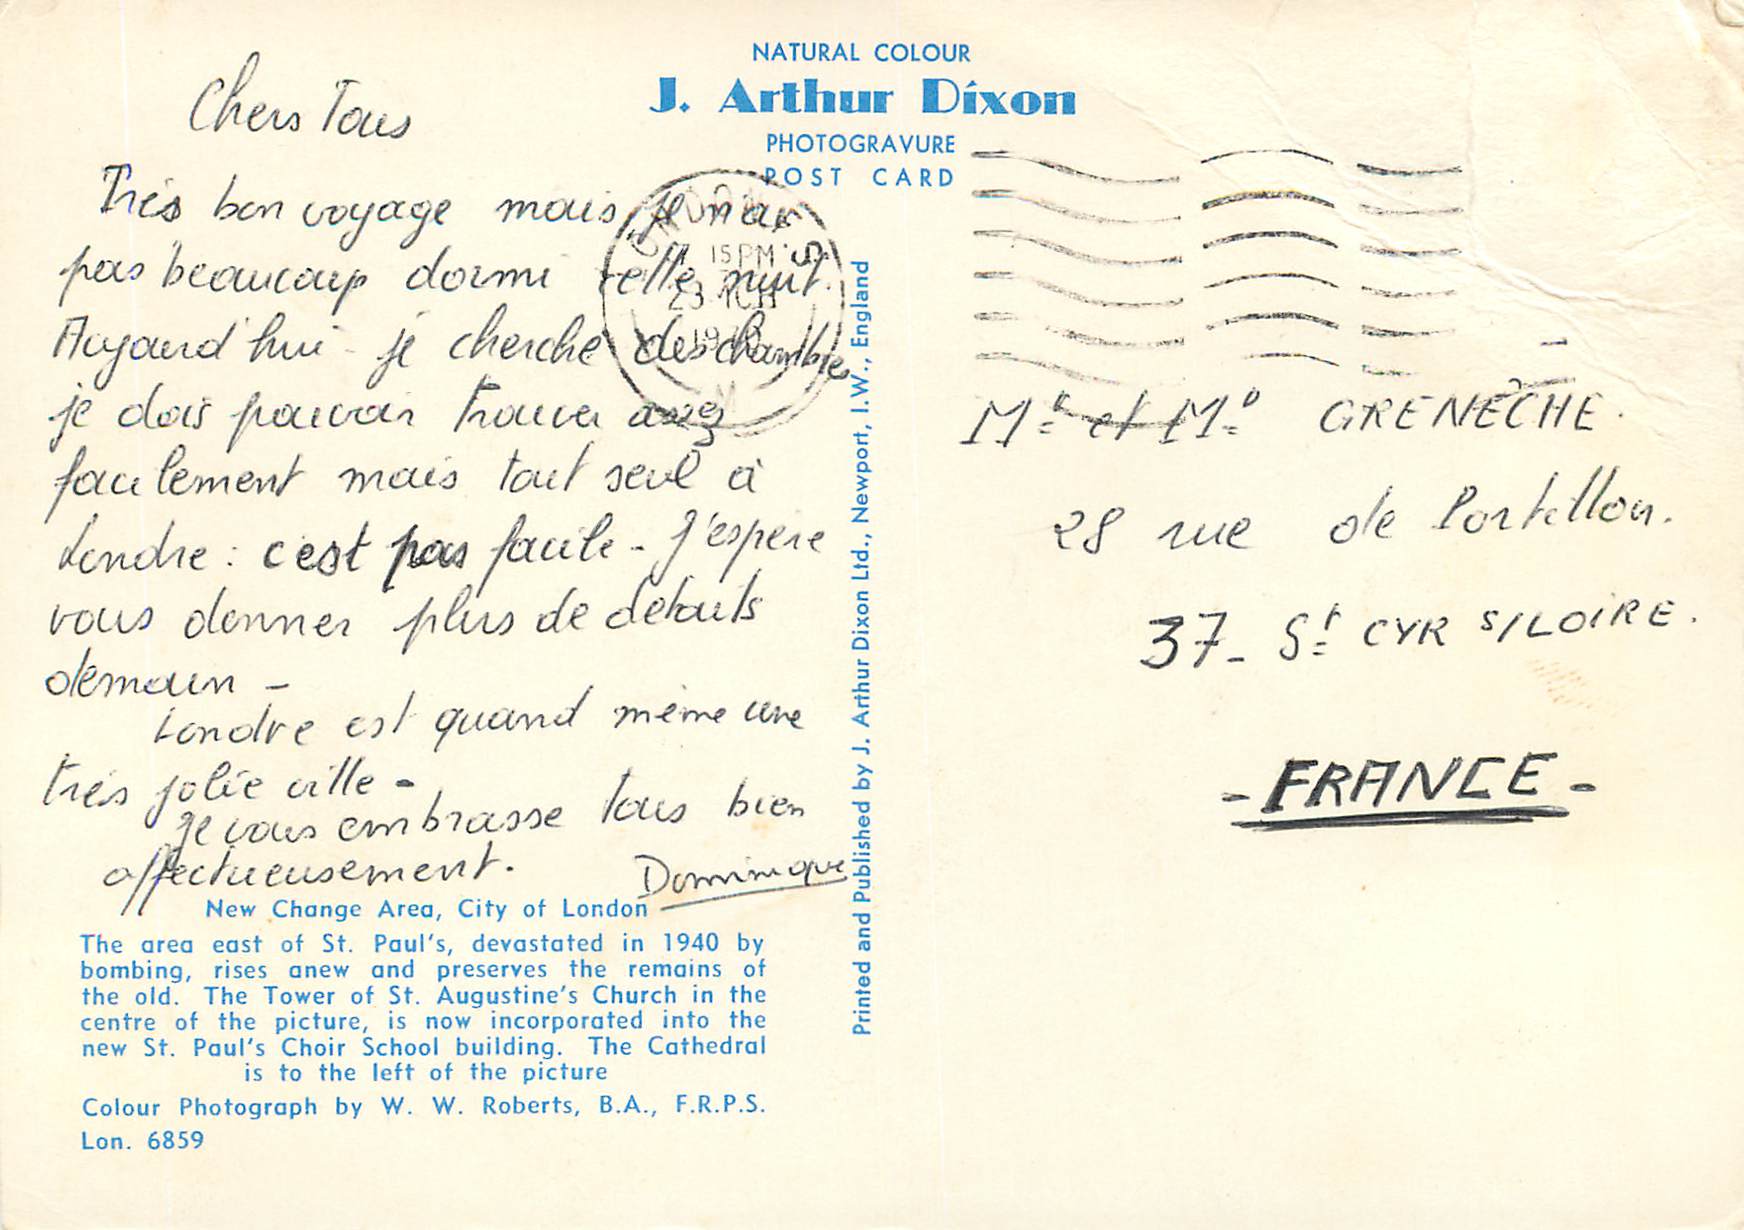 NATURAL COLOUR
J. Arthur Dixon
PHOTOGRAVURE
POST CARD
Chers Tous
Très bon voyage mais je n'ai
pas beaucoup dormi cette nuit.
Aujourd'hui je cherche des chambres
je dois pouvoir trouver assez
facilement mais tout seul à
Londre : c'est pas facile - J'espère
vous donner plus de détails
demain -
Londre est quand même une
très jolie ville -
Je vous embrasse tous bien
affectueusement.
Dominique
New Change Area, City of London
The area east of St. Paul's, devastated in 1940 by
bombing, rises anew and preserves the remains of
the old. The Tower of St. Augustine's Church in the
centre of the picture, is now incorporated into the
new St. Paul's Choir School building. The Cathedral
is to the left of the picture
Colour Photograph by W. W. Roberts, B.A., F.R.P.S.
Lon. 6859
Printed and Published by J. Arthur Dixon Ltd., Newport, I.W., England
15 PM
23
Mr et Me GRENÈCHE.
28 rue de Portillon.
37 - St CYR S/LOIRE.
- FRANCE -